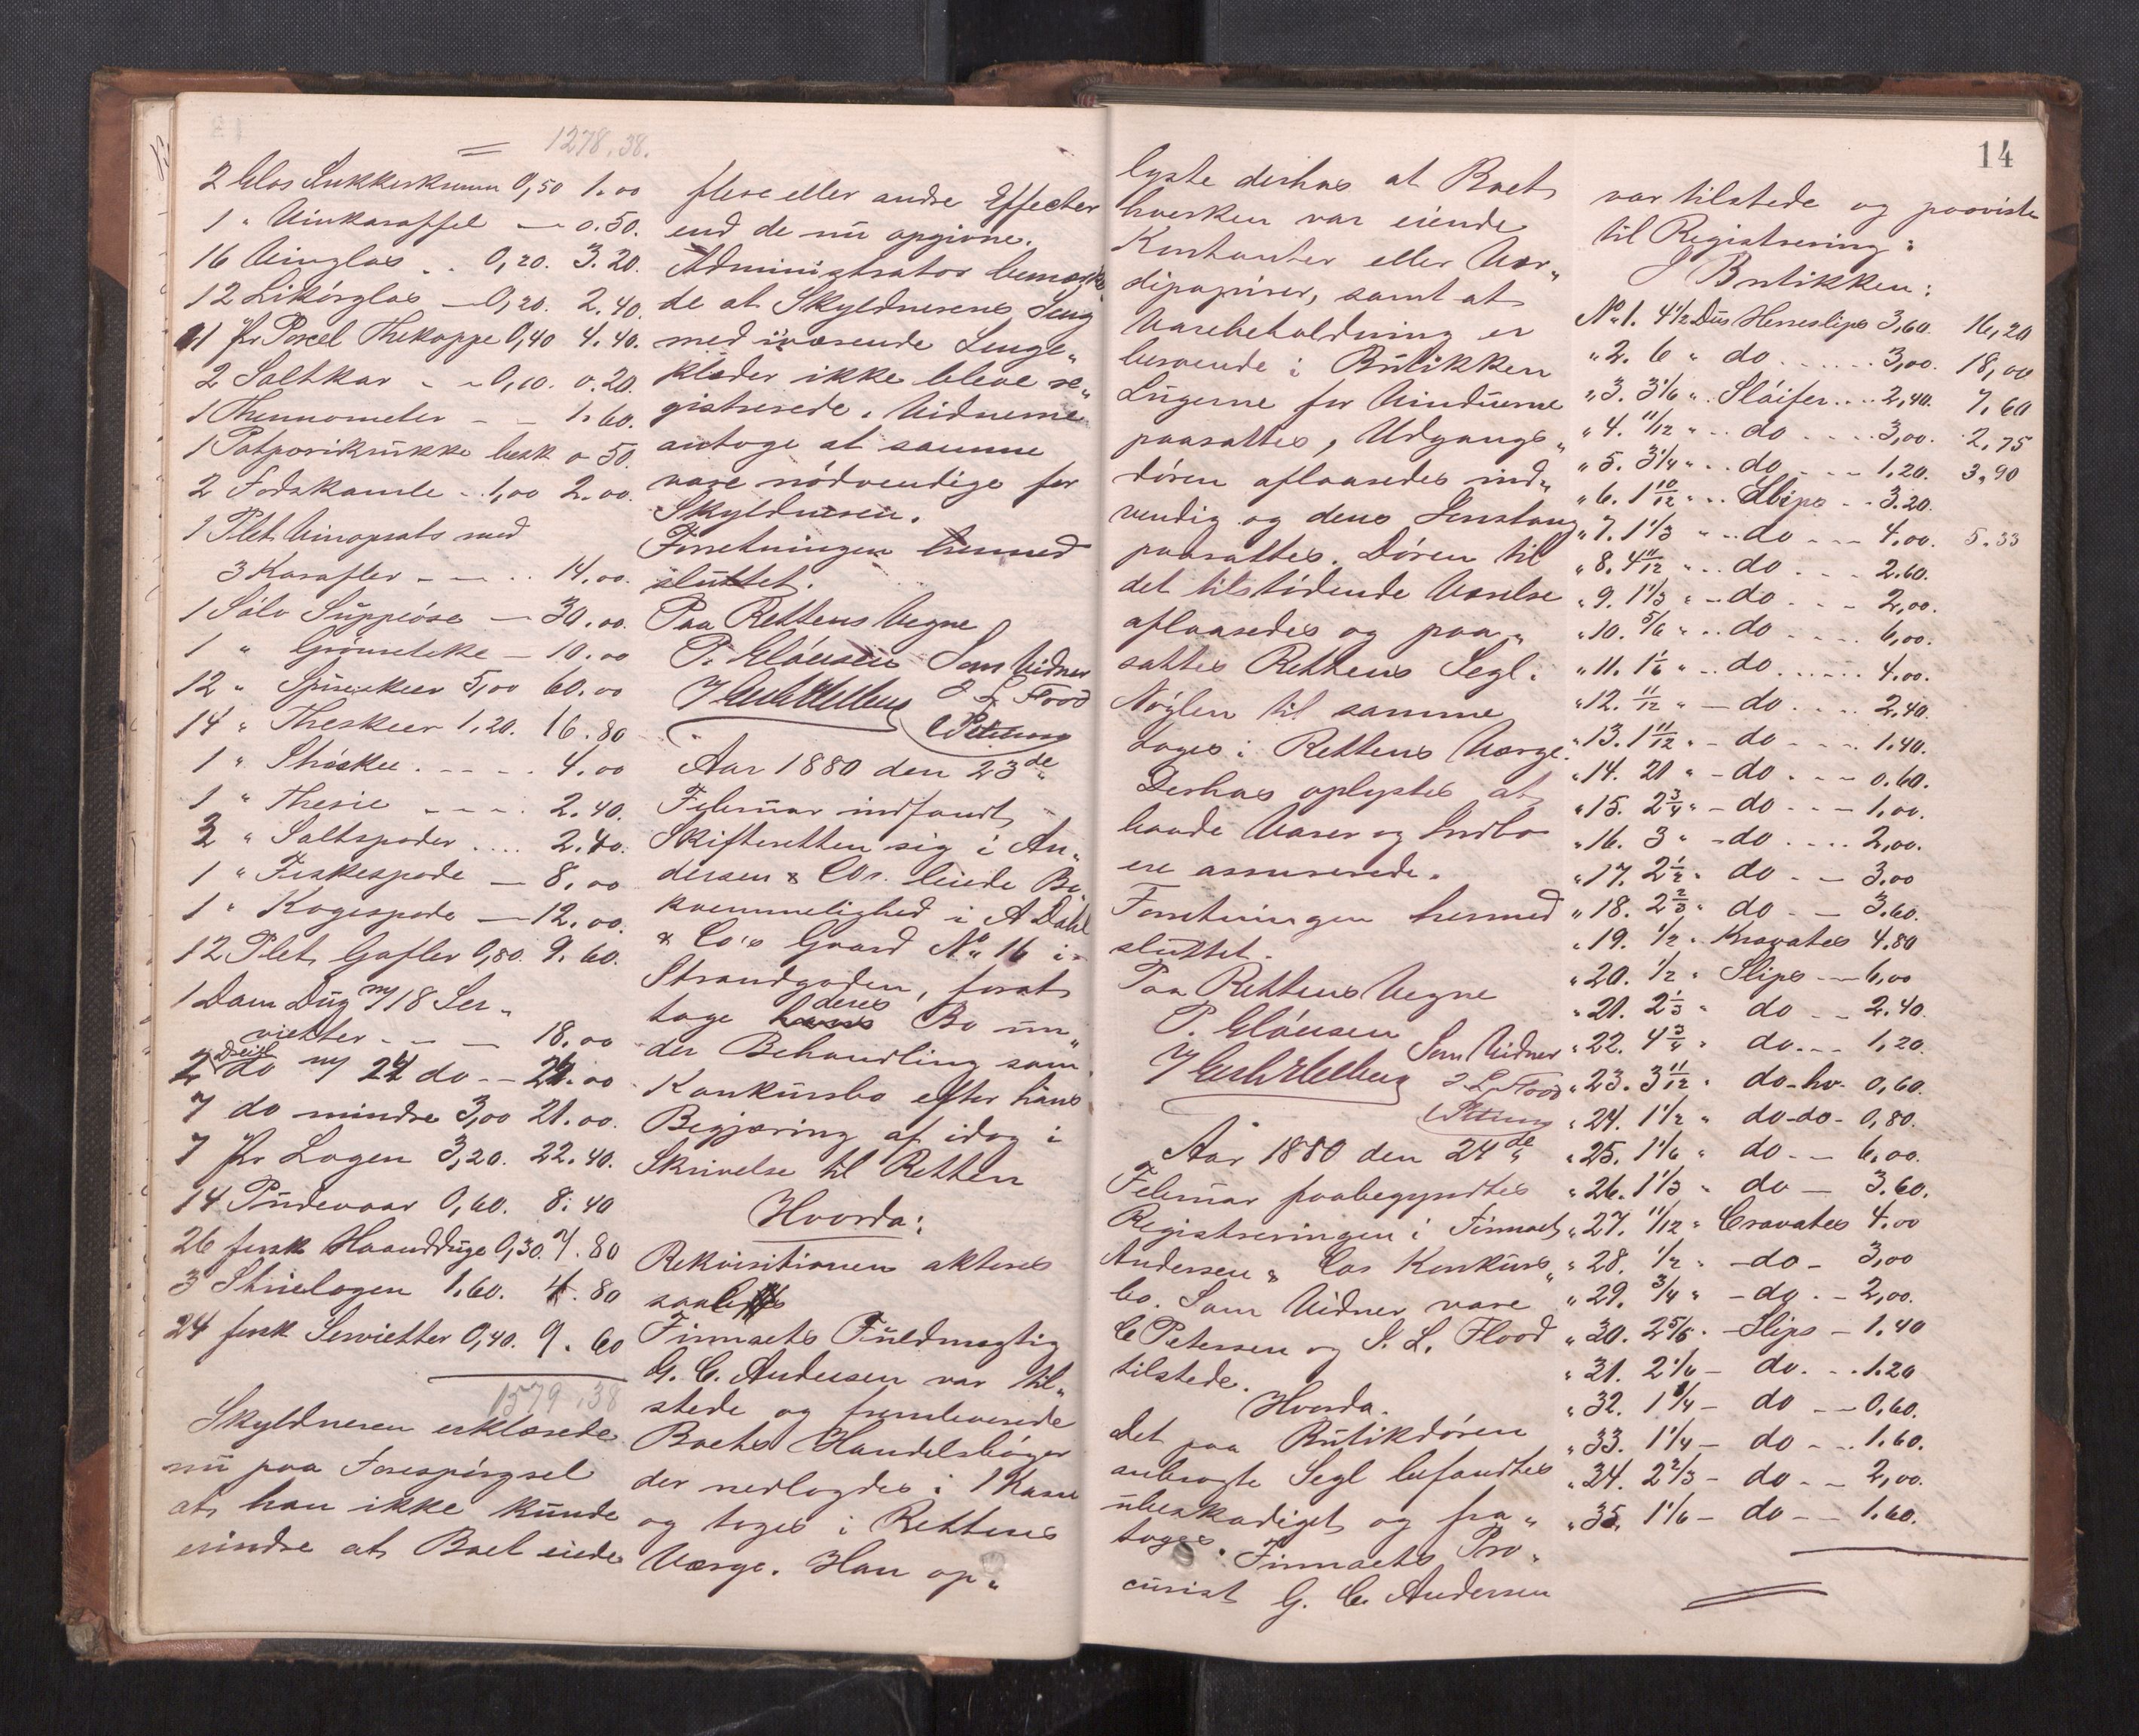 1278.38.
2 Glas Sukkerkumm 0,50 1.00
1 " Vinkaraffel — 0.50.
16 Vinglas .. 0,20. 3.20.
12 Likörglas — 0,20. 2.40.
11 Pr Porcel Thekoppe 0,40 4.40.
2 Saltkar - - 0,10. 0.20.
1 Thermometer - - 1.60.
1 Potporikrukke besk 0 50.
2 Fodskamle - 1,00 2.00.
1 Plet Vinopsats med
3 Karafler - - .. 14.00.
1 Sölv Suppeöse — 30.00.
1 " Grönsteke — 10.00
12 " Spiseskeer 5,00 60.00
14 " Theskeer 1.20. 16.80
1 " Ströskee . - - - . 4.00
1 " Thesie - - - . 2.40.
3 " Saltspader .... 2.40.
1 " Fiskespade — 8.00
1 " Kagespade — 12.00.
12 Plet Gafler 0,80. 9.60.
1 Dam Dug m/ 18 Ser„
vietter - - - 18.00
Dreil
2 do m/ 24 do - - 24.00
7 do mindre 3,00 21.00.
7 Pr Lagen 3,20. 22.40.
14 Pudevaar 0,60. 8.40
26 forsk Haandduge 0,30. 7.80
3 Strielagen 1.60. 4.80
24 forsk Servietter 0,40. 9.60
1579.38
Skyldneren erklærede
nu paa Forespörgsel
at han ikke kunde
erindre at Boet eiede
flere eller andre Effecter
end de nu opgivne.
Administrator bemærke
de at Skyldnerens Seng
med iværende Senge„
klæder ikke bleve re„
gistrerede. Vidnerne
antoge at samme
vare nödvendige for
Skyldneren.
Forretningen hermed
sluttet.
Paa Rettens Vegne
P. Clausen Som Vidner
S L Flood
C Petersen
Aar 1880 den 23de
Februar indfandt
Skifteretten sig i An„
dersen & Cos. leiede Be„
kvemmelighed i A Dahl
& Co's Gaard No 16 i
Strandgaden, forat
deres
tage hans Bo un„
der Behandling som
Konkursbo efter hans
Begjæring af idag i
Skrivelse til Retten
Hvorda:
Rekvisitionen akteres
saalydes
Firmaets Fuldmægtig
G. C. Andersen var til„
stede og fremleverede
Boets Handelsböger
der nedlagdes i 1 Kasse
og toges i Rettens
Værge. Han op„
14
lyste derhos at Boet
hverken var eiende
Kontanter eller Vær„
dipapirer, samt at
Varebeholdning er
beroende i Butikken
Lugerne for Vinduerne
paasattes, Udgangs„
dören aflaasedes ind„
vendig og dens Jernstang
paasattes. Dören til
det tilstödende Værelse
aflaasedes og paa„
sattes Rettens Segl.
Nöglen til samme
toges i Rettens Værge.
Derhos oplystes at
baade Varer og Indbo
ere assurerede.
Forretningen hermed
sluttet.
Paa Rettens Vegne
P. Clausen
Som Vidner
S L Flood
C Petersen
Aar 1880 den 24de
Februar paabegyndtes
Registreringen i Firmaet
Andersen & Cos Konkurs„
bo. Som Vidner vare
C Petersen og S. L. Flood
tilstede.
Hvorda.
Det paa Butikdören
anbragte Segl befandtes
ubeskadiget og fra„
toges. Firmaets Pro„
curist G. C. Andersen
var tilstede og paaviste
til Registrering:
I Butikken:
No 1. 4 1/2 Dus Herreslips 3,60. 16,20
" 2. 6 " do ...... 3,00. 18,00
" 3. 3 1/6 " . Slöifer .... 2,40. 7,60
" 4. 11/12 " .. do .... 3,00. 2,75
" 5. 3 1/4 " .. do - - - 1,20. 3,90
" 6. 1 10/12 " .. Slips - - 3.20.
" 7. 1 1/3 " .. do - - - 4.00. 5.33
" 8. 4 11/12 " .. do . - - 2.60.
" 9. 1 1/3 " - do . - - 2,00.
" 10. 5/6 " .. do - - - - 6,00.
" 11. 1 1/6 " .. do ...... 4.00.
" 12. 11/12 " — do .... 2,40.
" 13. 1 11/12 " - do - - - . 1.40.
" 14. 21 " - do . - - 0.60.
" 15. 2 3/4 " - do - - - 1,00.
" 16. 3 " - do .... 2,00.
" 17. 2 1/2 " do - - 3.00
" 18. 2 2/3 " do - - 3.60.
" 19. 1/2 " Kravates 4.80
" 20. 1/2 " Slips — 6,00
" 21. 2 1/3 " do - - 2.40.
" 22. 4 3/4 " do. - - 1,20.
" 23. 3 11/12 " do - hv. 0,60.
" 24. 1 1/2 " do - do - 0,80.
" 25. 1 1/6 " do - - 6,00.
" 26. 1 1/3 " do — 3.60.
" 27. 11/12 " Cravates 4.00
" 28. 1/2 " - do - 3,00
" 29. 3/4 " - do . - 2,00.
" 30. 2 5/6 - Slips - 1.40
" 31. 2 1/6 - do. - . 1.20
" 32. 1 1/4 - do - - 0,60.
" 33. 1 1/4 - do - .. 1.60.
" 34. 2 2/3 - do - - 2,00.
" 35. 1 1/6 - do - - 1.60.